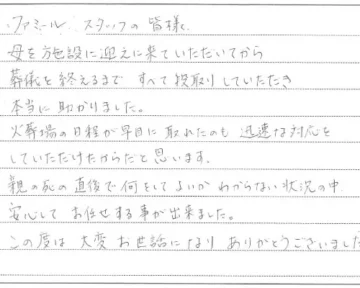 ファミール スタッフの皆様
母を施設に迎えに来ていただいてから
葬儀を終えるまで すべて段取りしていただき
本当に助かりました。
火葬場の日程が早目に取れたのも 迅速な対応を
していただけたからだと思います。
親の死の直後で何をしてよいかわからない状況の中
安心して お任せする事が出来ました。
この度は 大変お世話になり ありがとうございました